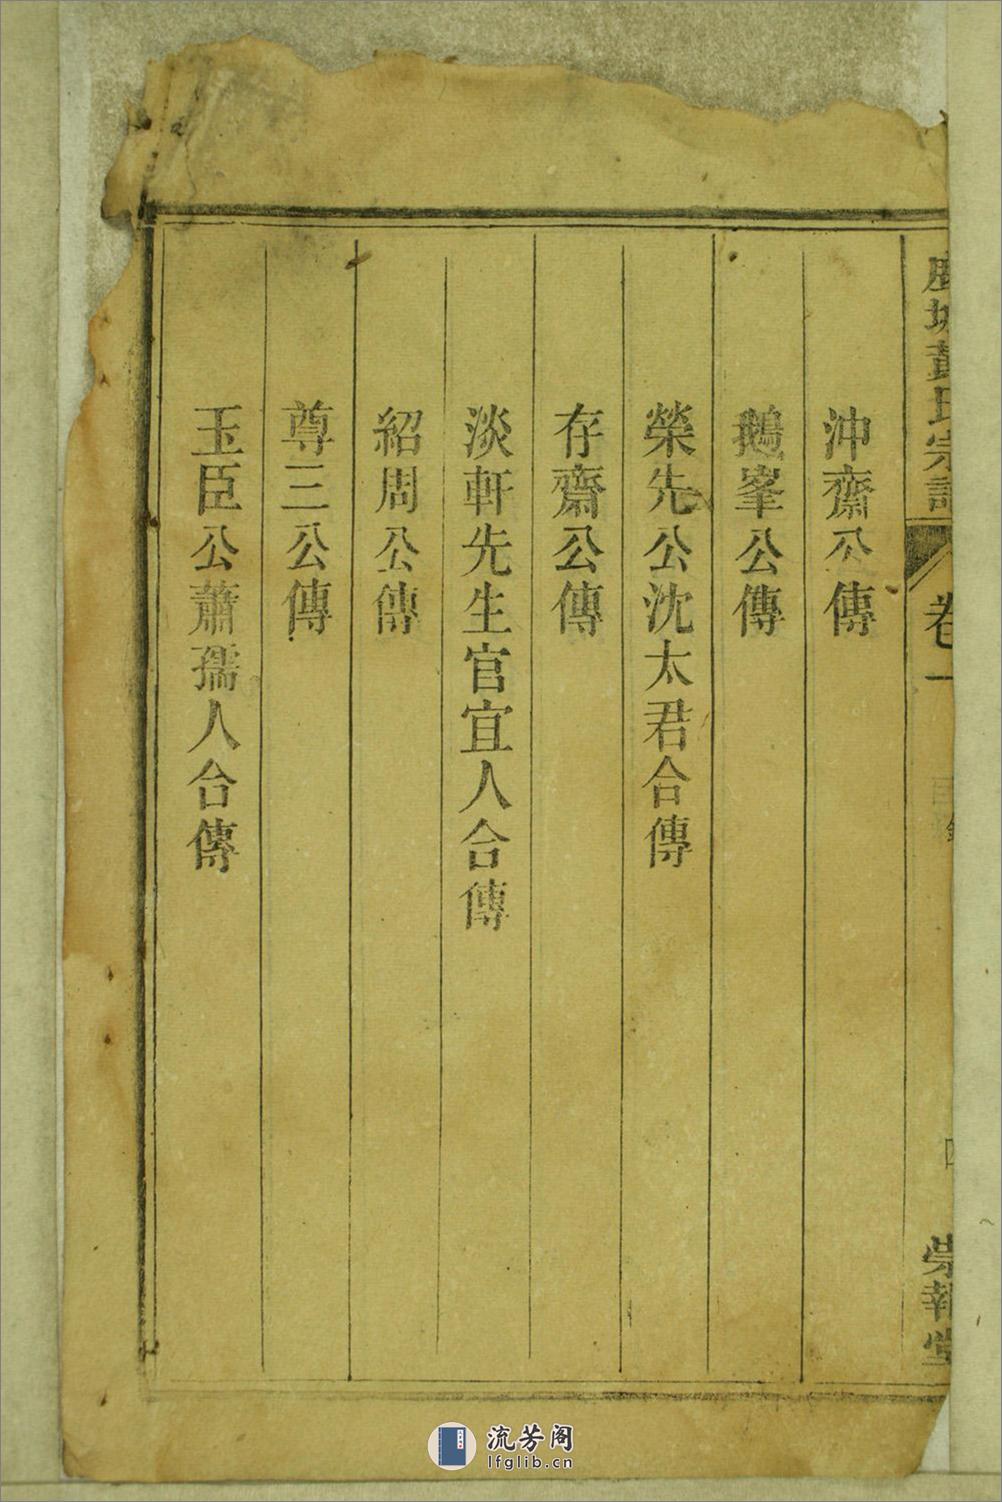 城黃氏宗譜
卷一
目錄
四
崇報堂
沖齋公傳
鵝峯公傳
榮先公沈太君合傳
存齋公傳
淡軒先生官宜人合傳
紹周公傳
尊三公傳
玉臣公蕭孺人合傳
流芳阁
lfglib.cn